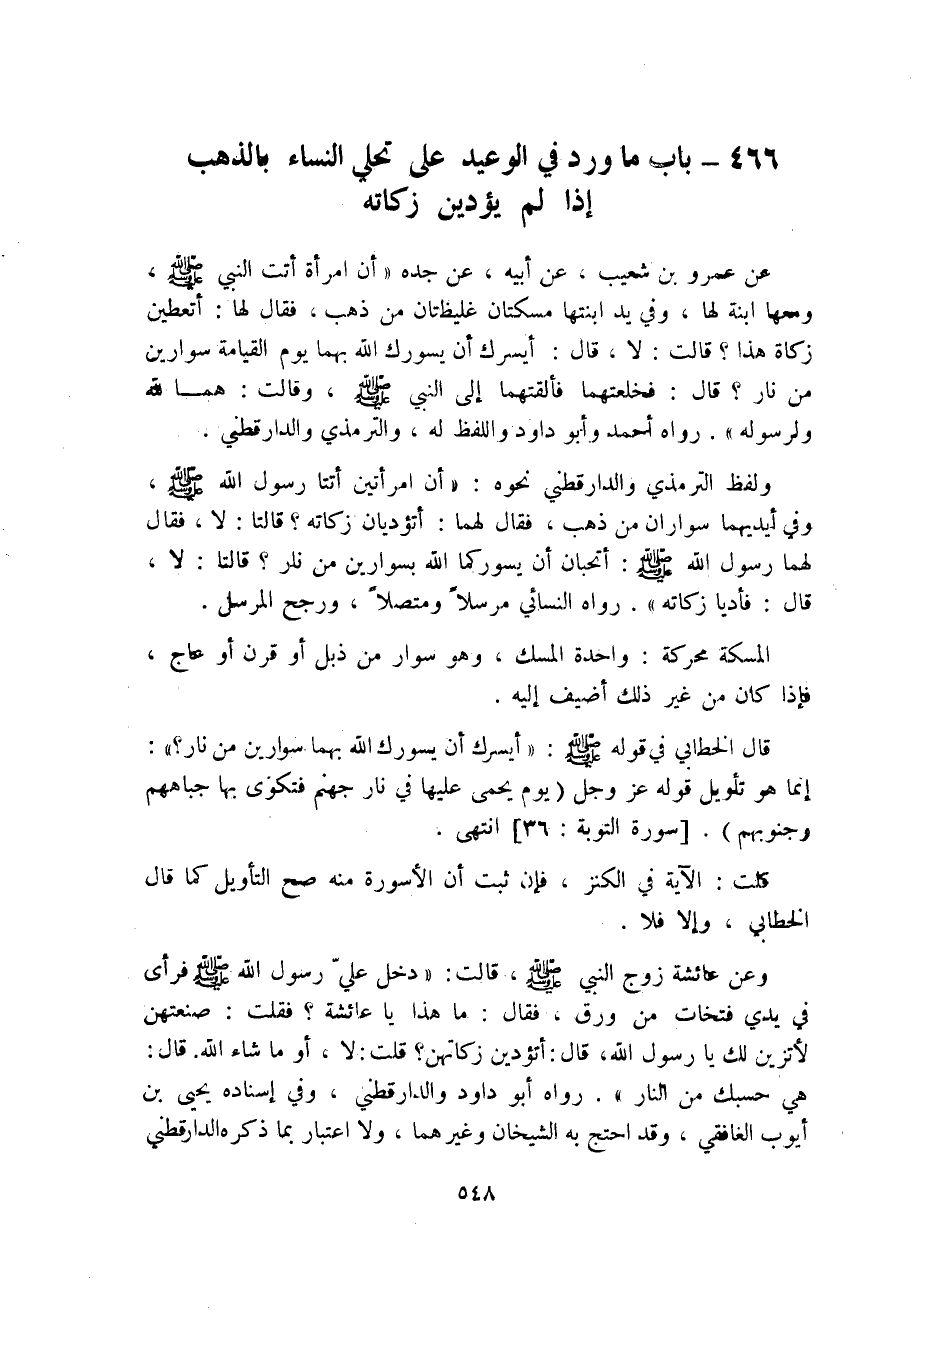 ٤٦٦ – باب ما ورد في الوعيد على تحلي النساء بالذهب
إذا لم يؤدين زكاته
عن عمرو بن شعيب ، عن أبيه ، عن جده « أن امرأة أتت النبي ﷺ ،
ومعها ابنة لها ، وفي يد ابنتها مسكتان غليظتان من ذهب ، فقال لها : أتعطين
زكاة هذا ؟ قالت : لا ، قال : أيسرك أن يسورك الله بهما يوم القيامة سوارين
من نار ؟ قال : فخلعتهما فألقتهما إلى النبي ﷺ ، وقالت : همـــا لله
ولرسوله » . رواه أحمد وأبو داود واللفظ له ، والترمذي والدارقطني .
ولفظ الترمذي والدارقطني نحوه : « أن امرأتين أتتا رسول الله ﷺ ،
وفي أيديهما سواران من ذهب ، فقال لهما : أتؤديان زكاته ؟ قالتا : لا ، فقال
لهما رسول الله ﷺ : أتحبان أن يسوركما الله بسوارين من نار ؟ قالتا : لا ،
قال : فأديا زكاته » . رواه النسائي مرسلاً ومتصلاً ، ورجح المرسل .
المسكة محركة : واحدة المسك ، وهو سوار من ذبل أو قرن أو عاج ،
فإذا كان من غير ذلك أضيف إليه .
قال الخطابي في قوله ﷺ : « أيسرك أن يسورك الله بهما سوارين من نار؟» :
إنما هو تأويل قوله عز وجل ( يوم يحمى عليها في نار جهنم فتكوى بها جباههم
وجنوبهم ) . [سورة التوبة : ٣٦] انتهى .
قلت : الآية في الكنز ، فإن ثبت أن الأسورة منه صح التأويل كما قال
الخطابي ، وإلا فلا .
وعن عائشة زوج النبي ﷺ ، قالت: « دخل عليّ رسول الله ﷺ فرأى
في يدي فتخات من ورق ، فقال : ما هذا يا عائشة ؟ فقلت : صنعتهن
لأتزين لك يا رسول الله، قال: أتؤدين زكاتهن؟ قلت: لا ، أو ما شاء الله. قال:
هي حسبك من النار » . رواه أبو داود والدارقطني ، وفي إسناده يحيى بن
أيوب الغافقي ، وقد احتج به الشيخان وغيرهما ، ولا اعتبار بما ذكره الدارقطني
٥٤٨